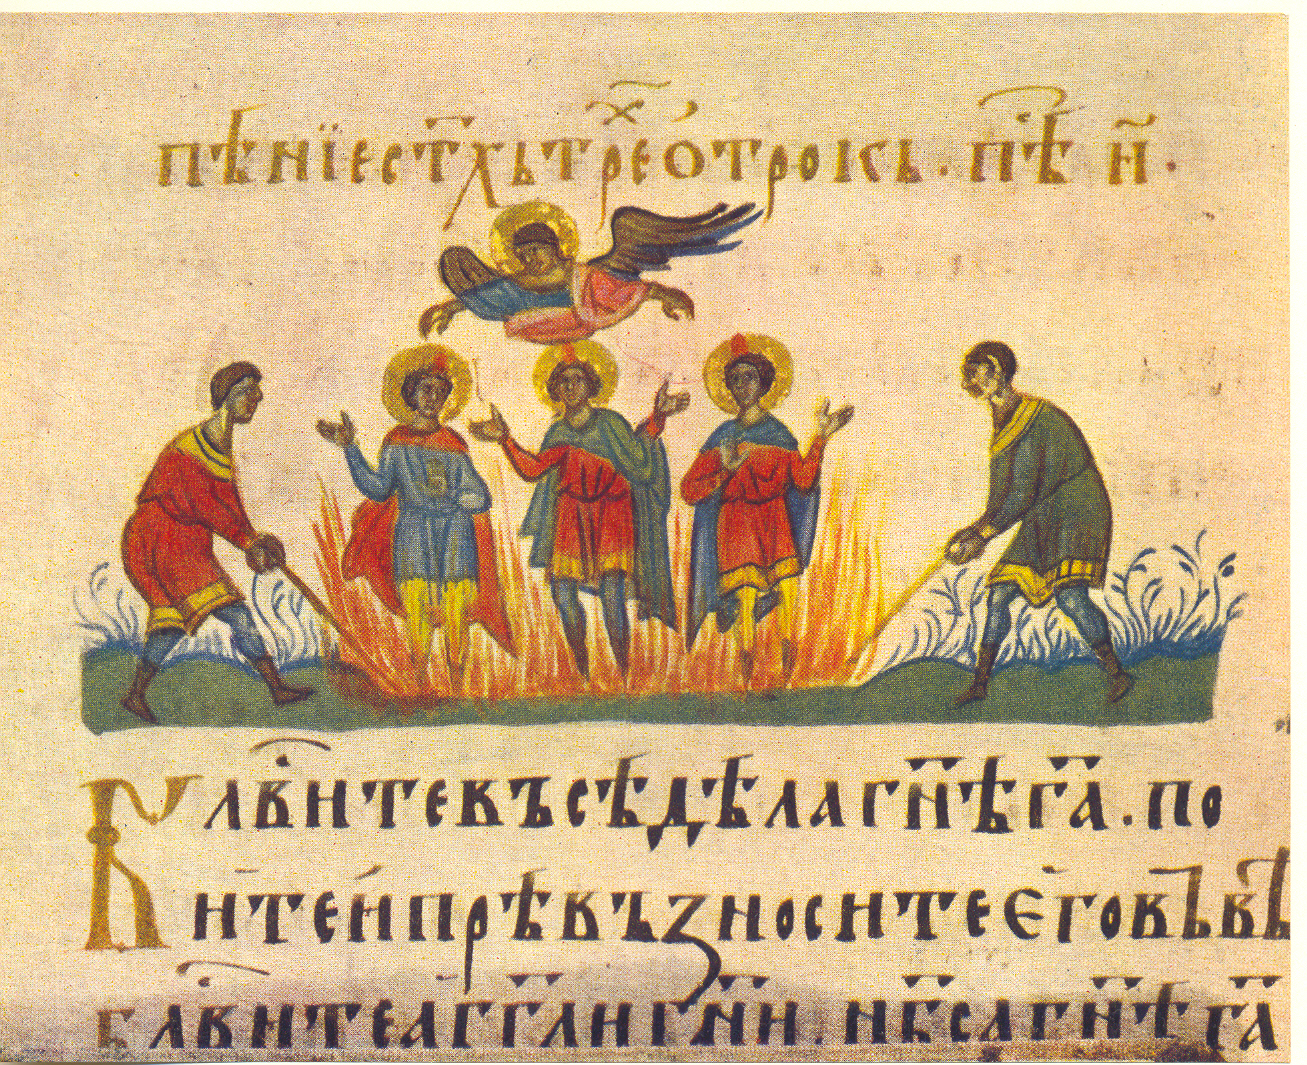 пѣнїест҃хътреѻ́трокъ. пѣ҃ и҃.
Блв҃итевъсѣдѣлагн҃ѣга҃. по
ит҃еипрѣвъзноситеѥговъвѣ
блв҃итеагг҃лигн҃и. нб҃сагн҃ѣга҃